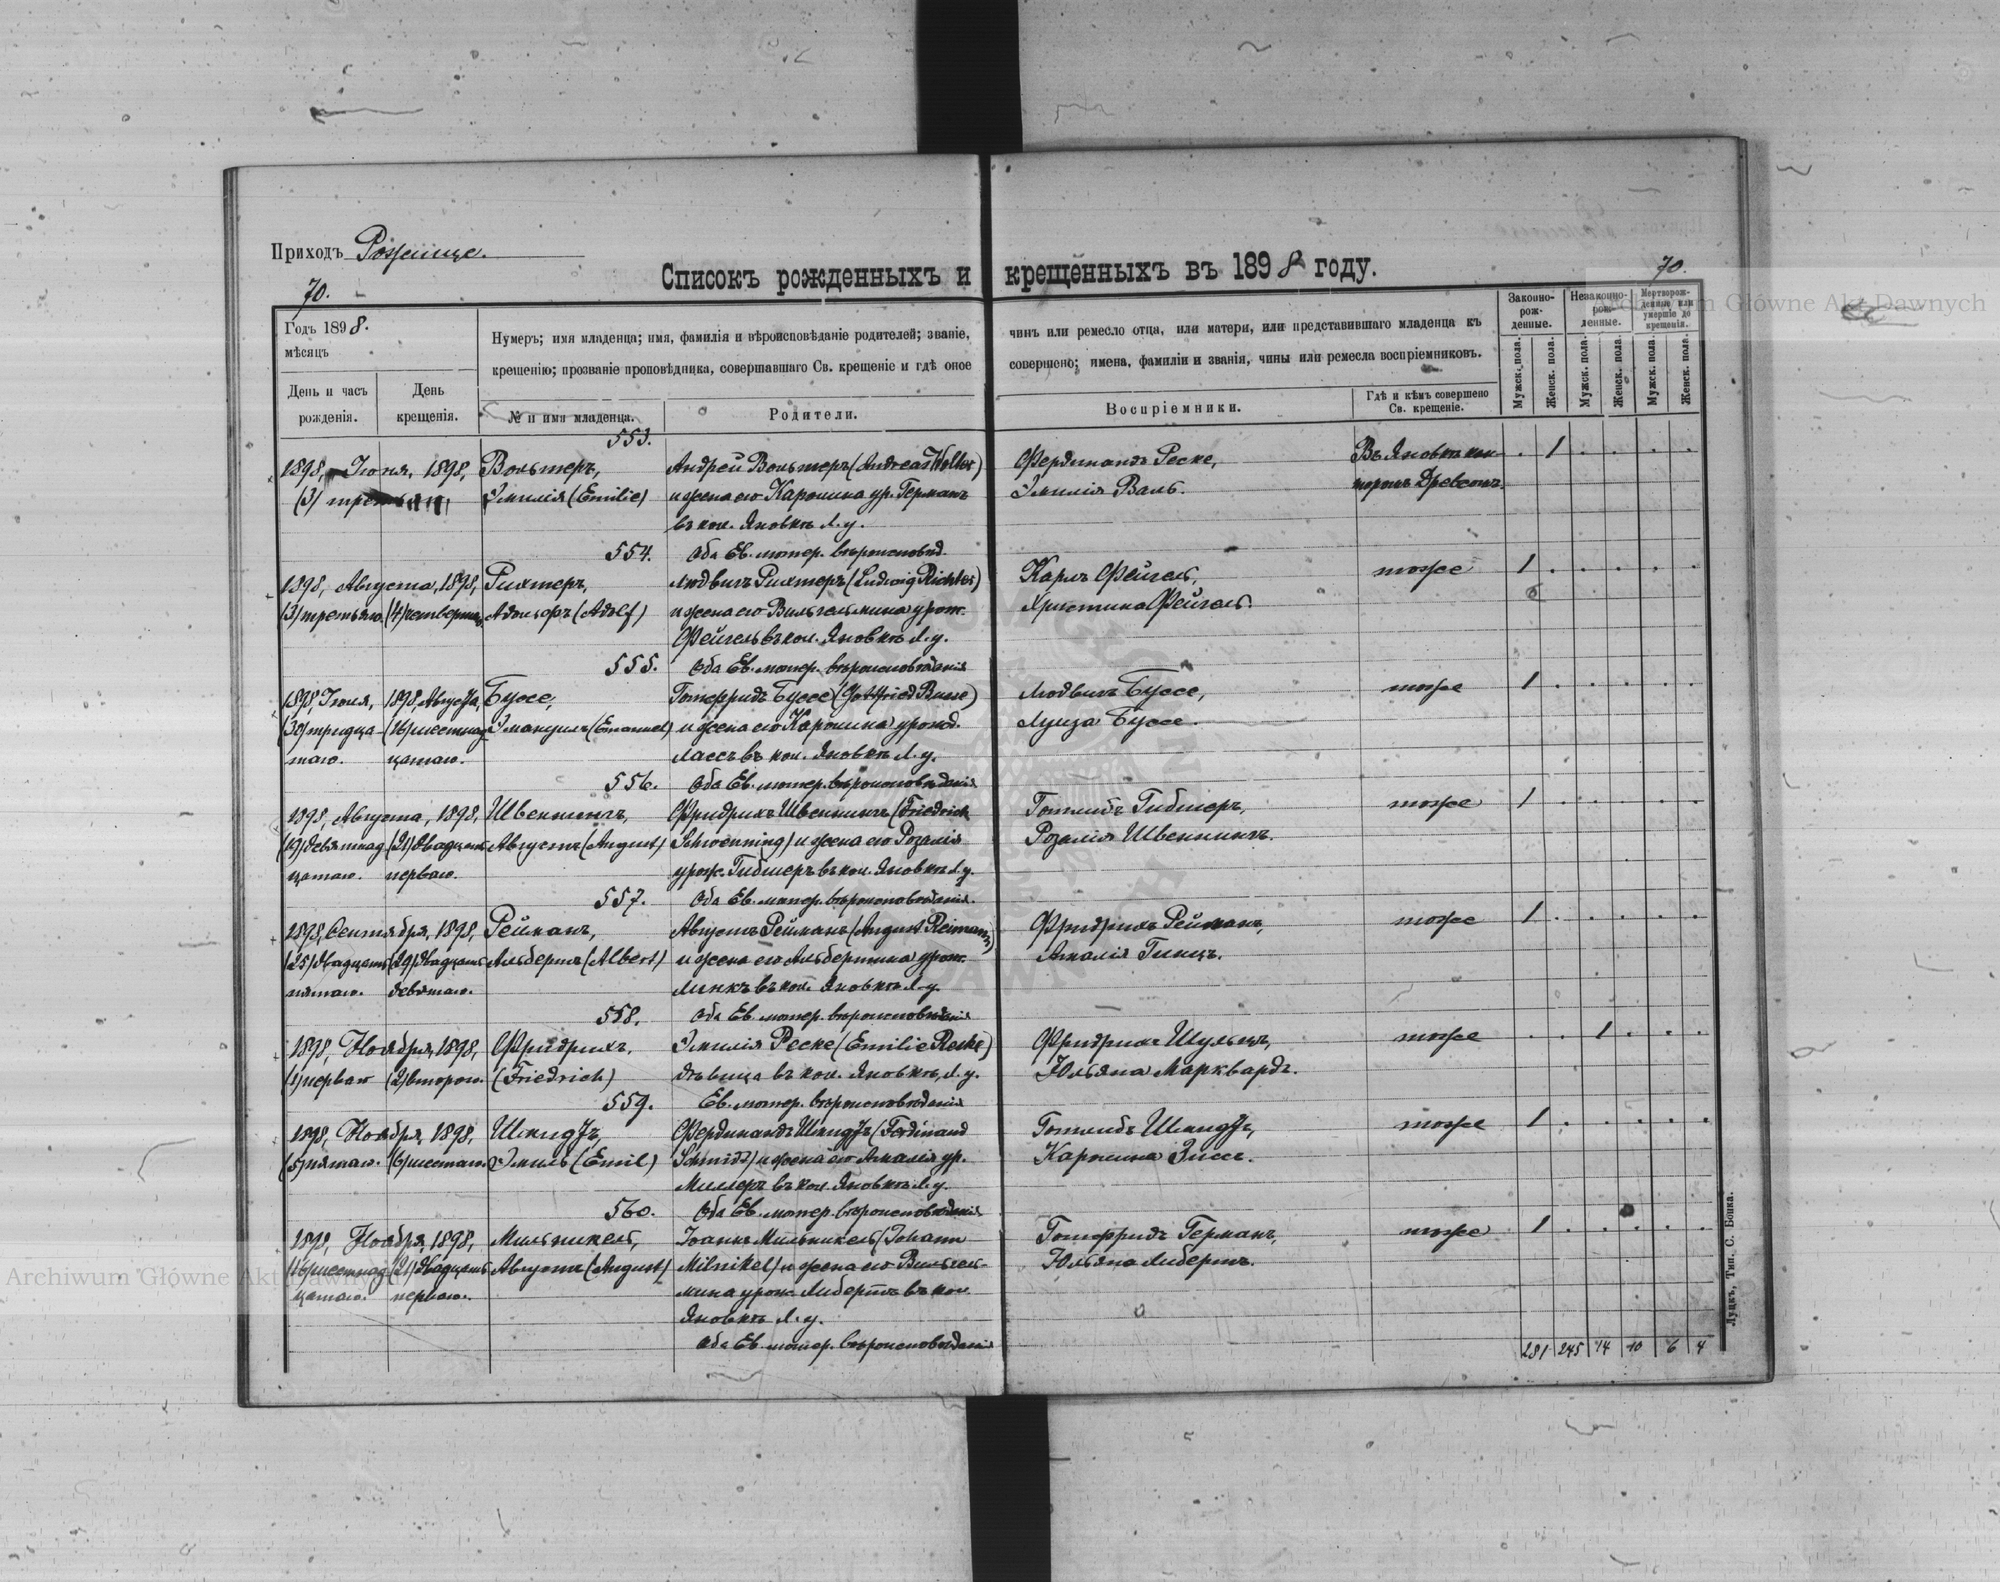 Приходъ Рожище.
Списокъ рожденныхъ и крещенныхъ въ 1898 году.
70.
70.
Годъ 1898.
мѣсяцъ
День и часъ рожденія.
День крещенія.
Нумеръ; имя младенца; имя, фамилія и вѣроисповѣданіе родителей; званіе, чинъ или ремесло отца, или матери, или представившаго младенца къ
крещенію; прозваніе проповѣдника, совершавшаго Св. крещеніе и гдѣ оное совершено; имена, фамиліи и званія, чины или ремесла воспріемниковъ.
№ и имя младенца.
Родители.
Воспріемники.
Гдѣ и кѣмъ совершено Св. крещеніе.
Законно-рож-денные.
Незаконно-рож-денные.
Мертворож-денные или умершіе до крещенія.
Мужск. пола.
Женск. пола.
Мужск. пола.
Женск. пола.
Мужск. пола.
Женск. пола.
553.
1898, Іюня, 1898, Вольтеръ, Андрей Вольтеръ (Andreas Wolter) Фердинандъ Реске, Въ Яновкѣ кан- 1
(3) Эмилія (Emilie) и жена его Каролина ур. Германъ Эмилія Валь. торомъ Древсомъ.
въ кол. Яновкѣ Л. у.
554. Оба Ев. лютер. вѣроисповѣд.
1898, Августа, 1898, Рихтеръ, Людвигъ Рихтеръ (Ludwig Richter) Карлъ Фейгель, тоже 1
(3) третьяго (4) четвертаго Адольфъ (Adolf) и жена его Вильгельмина урож. Христина Фейгель.
Фейгель въ кол. Яновкѣ Л. у.
555. Оба Ев. лютер. вѣроисповѣданія
1898, Іюля, 1898, Августа, Буссе, Готфридъ Буссе (Gottfried Busse) Людвигъ Буссе, тоже 1
(30) тридца- (16) шестнад- Эмануилъ (Emanuel) и жена его Каролина урожд. Луиза Буссе.
таго. цатаго. Лассъ въ кол. Яновкѣ Л. у.
556. Оба Ев. лютер. вѣроисповѣданія
1898, Августа, 1898, Швеннингъ, Фридрихъ Швеннингъ (Friedrich Готлибъ Гиблеръ, тоже 1
(19) девятнад- (21) двадцать Августъ (August) Schwenning) и жена его Розалія Розалія Швеннингъ.
цатаго. перваго. урож. Гиблеръ въ кол. Яновкѣ Л. у.
557. Оба Ев. лютер. вѣроисповѣданія.
1898, Сентября, 1898, Рейманъ, Августъ Рейманъ (August Reimann) Фридрихъ Рейманъ, тоже 1
(25) двадцать (29) двадцать Альбертъ (Albert) и жена его Альбертина урож. Амалія Гинцъ.
пятаго. девятаго. Линкъ въ кол. Яновкѣ Л. у.
558. Оба Ев. лютер. вѣроисповѣданія
1898, Ноября, 1898, Фридрихъ, Эмилія Реске (Emilie Reske) Фридрихъ Шульцъ, тоже 1
(1) перваго (2) второго. (Friedrich) дѣвица въ кол. Яновкѣ, Л. у. Юльяна Марквардъ.
559. Ев. лютер. вѣроисповѣданія
1898, Ноября, 1898, Шмидтъ, Фердинандъ Шмидтъ (Ferdinand Готлибъ Шмидтъ, тоже 1
(5) пятаго. (6) шестаго. Эмиль (Emil) Schmidt) и жена его Амалія ур. Каролина Зиссъ.
Миллеръ въ кол. Яновкѣ Л. у.
560. Оба Ев. лютер. вѣроисповѣданія
1898, Ноября, 1898, Мильникель, Іоганъ Мильникель (Johann Готфридъ Германъ, тоже 1
(16) шестнад- (21) двадцать Августъ (August) Milnikel) и жена его Вильгель- Юльяна Либертъ.
цатаго. перваго. мина урож. Либертъ въ кол.
Яновкѣ Л. у.
Оба Ев. лютер. вѣроисповѣданія
281 245 14 10 6 4
Луцкъ, Тип. С. Бонка.
Archiwum Główne Akt Dawnych
Archiwum Główne Akt